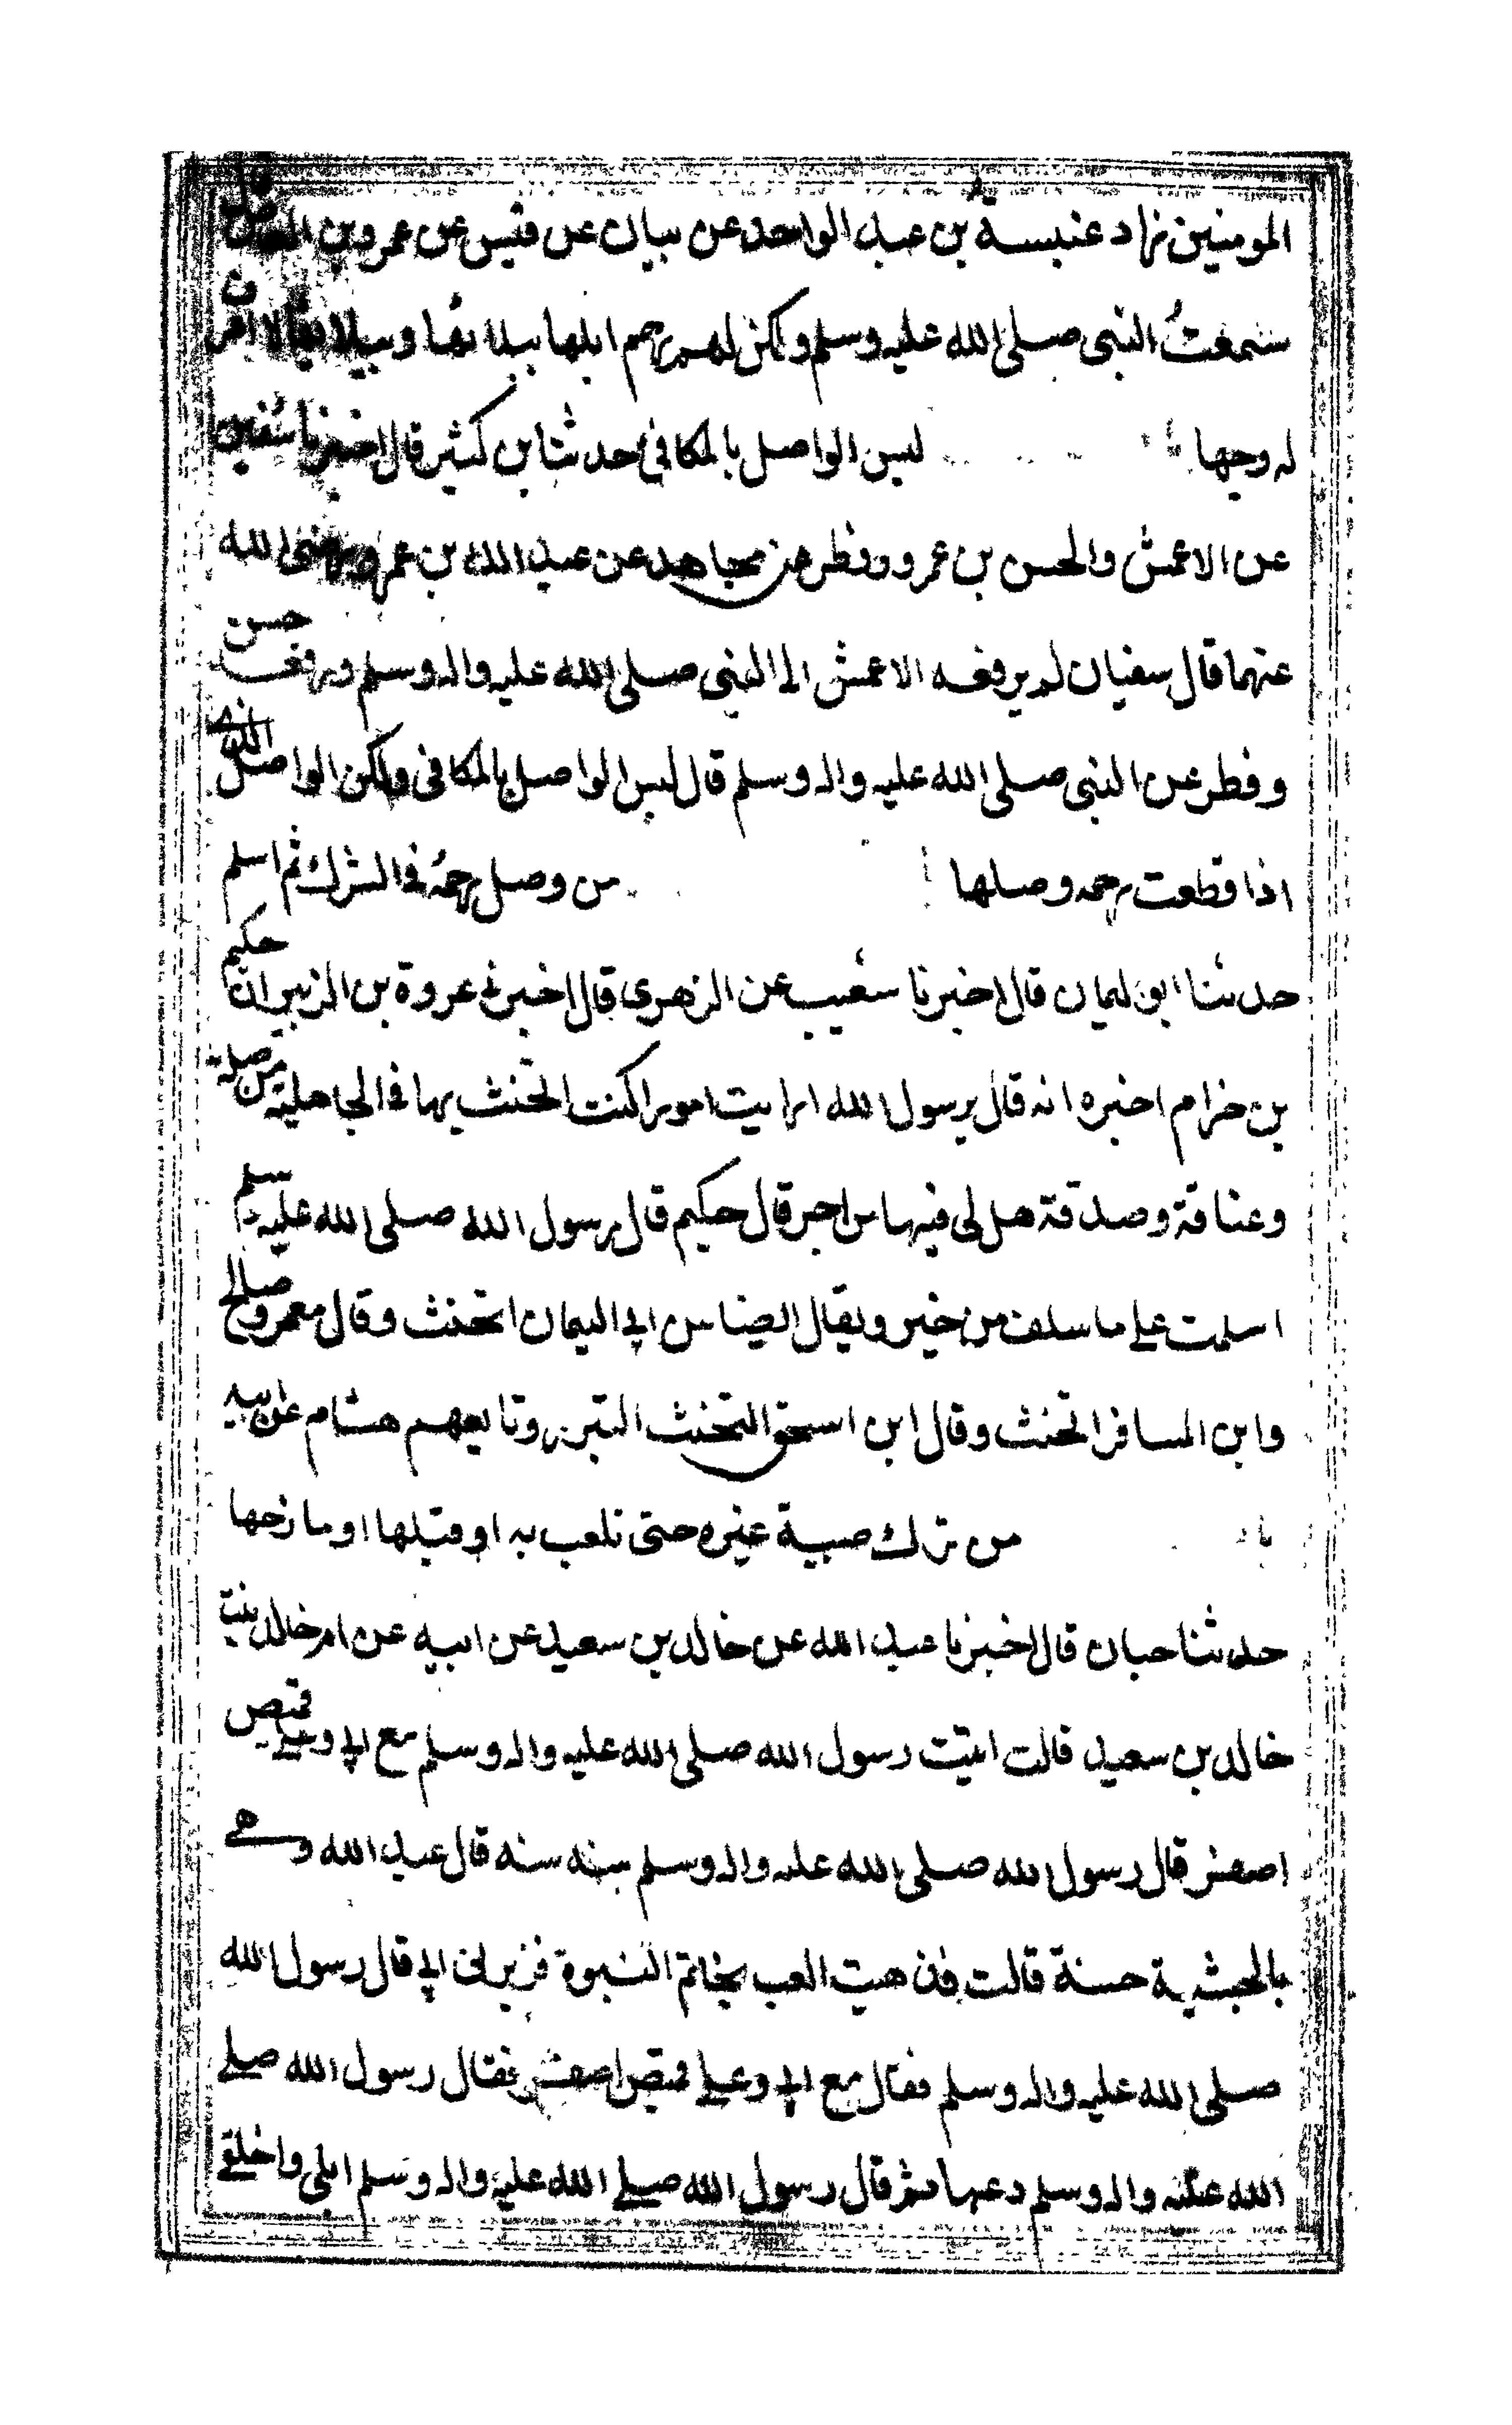 المومنين زاد عنبسة بن عبد الواحد عن بيان عن قيس عن عمرو بن العاص
سمعت النبي صلى الله عليه وسلم ولكن لهم رحم ابلها ببلاتها وببلايها لا اعرف
له وجها ليس الواصل بالمكافئ حدثنا بن كثير قال اخبرنا سفين
عن الاعمش والحسن بن عمرو وفطر عن مجاهد عن عبد الله بن عمرو رضي الله
عنهما قال سفيان لم يرفعه الاعمش الى النبي صلى الله عليه واله وسلم ورفعه حسن
وفطر عن النبي صلى الله عليه واله وسلم قال ليس الواصل بالمكافي ولكن الواصل الذي
اذا قطعت رحمه وصلها من وصل رحمه في الشرك ثم اسلم
حدثنا ابو ليمان قال اخبرنا شعيب عن الزهري قال اخبرني عروة بن الزبير ان حكيم
بن حزام اخبره انه قال يرسول الله ارايت امورا كنت اتحنث بها في الجاهلية من صلة
وعتاقة وصدقة هل لي فيها من اجر قال حكيم قال رسول الله صلى الله عليه وسلم
اسلمت على ما سلف من خير ويقال ايضا من ابي اليمان اتحنث وقال معمر وصالح
وابن المسافر اتحنث وقال ابن اسحق التحنث التبرر وتابعهم هشام عن ابيه
باب من ترك صبية غيره حتى تلعب به او قبلها او مازحها
حدثنا حبان قال اخبرنا عبد الله عن خالد بن سعيد عن ابيه عن ام خالد بنت
خالد بن سعيد قالت اتيت رسول الله صلى الله عليه واله وسلم مع ابي وعلي قميص
اصفر قال رسول الله صلى الله عليه واله وسلم سنه سنه قال عبد الله وهي
بالحبشية حسنة قالت فذهبت العب بخاتم النبوة فزبرني ابي قال رسول الله
صلى الله عليه واله وسلم فقال مع ابي وعلي قميص اصفر فقال رسول الله صلى
الله عليه واله وسلم دعها ثم قال رسول الله صلى الله عليه واله وسلم ابلي واخلقي